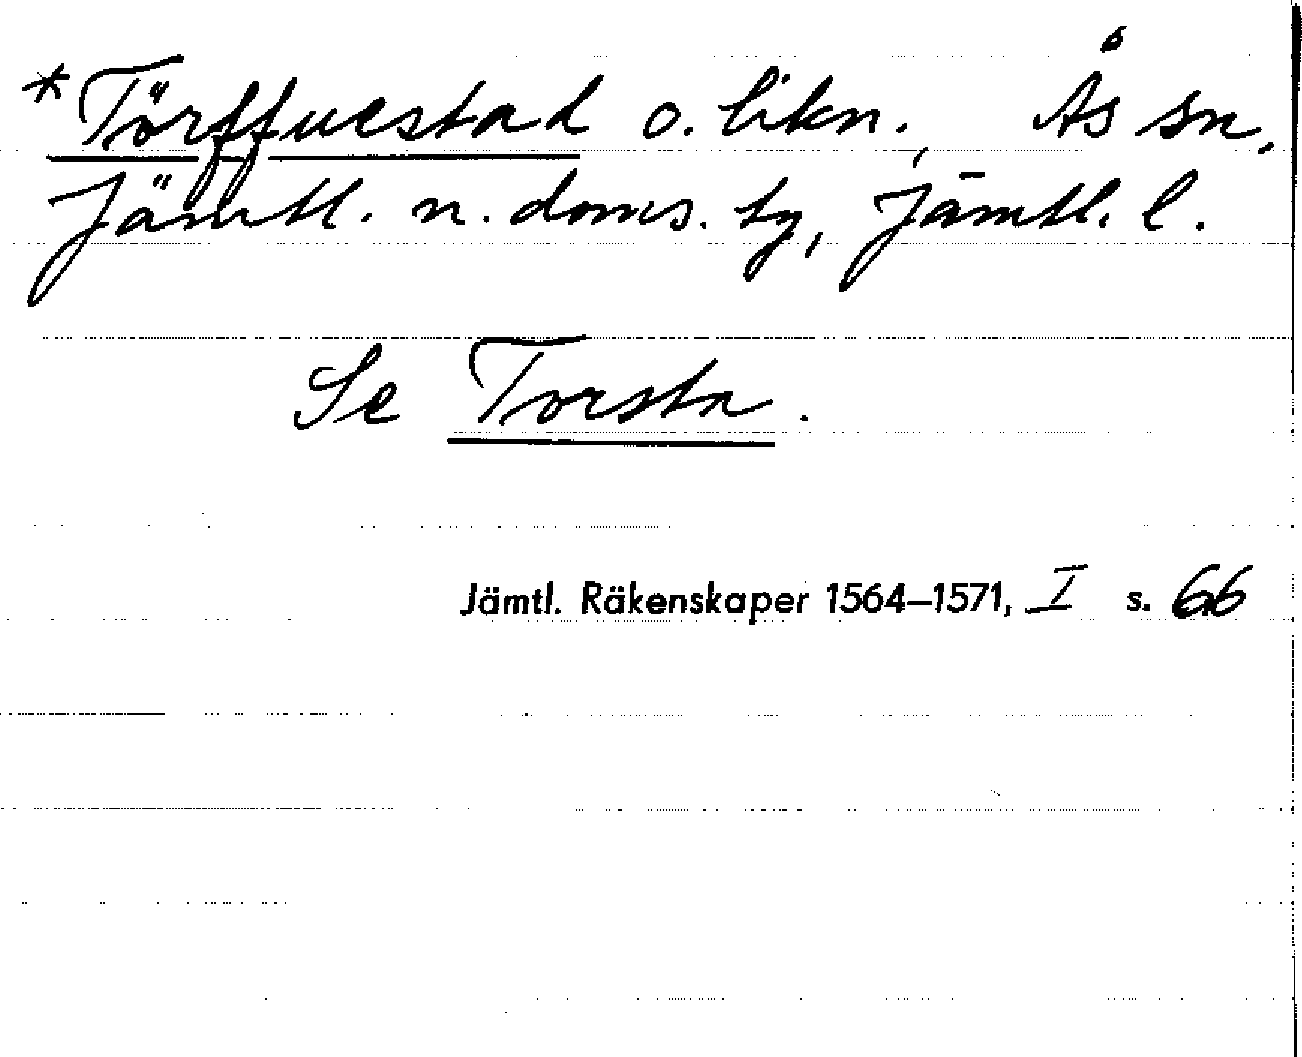 *Törffuestad o. likn., Ås sn,
Jämtl. n. doms. tg, Jämtl. l.
Se Torsta.
Jämtl. Räkenskaper 1564–1571, I s. 66